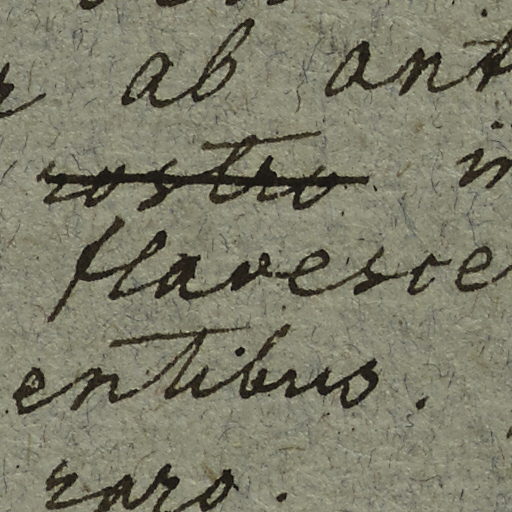 ab ant
rostro in
flavesce
entibus.
raro.